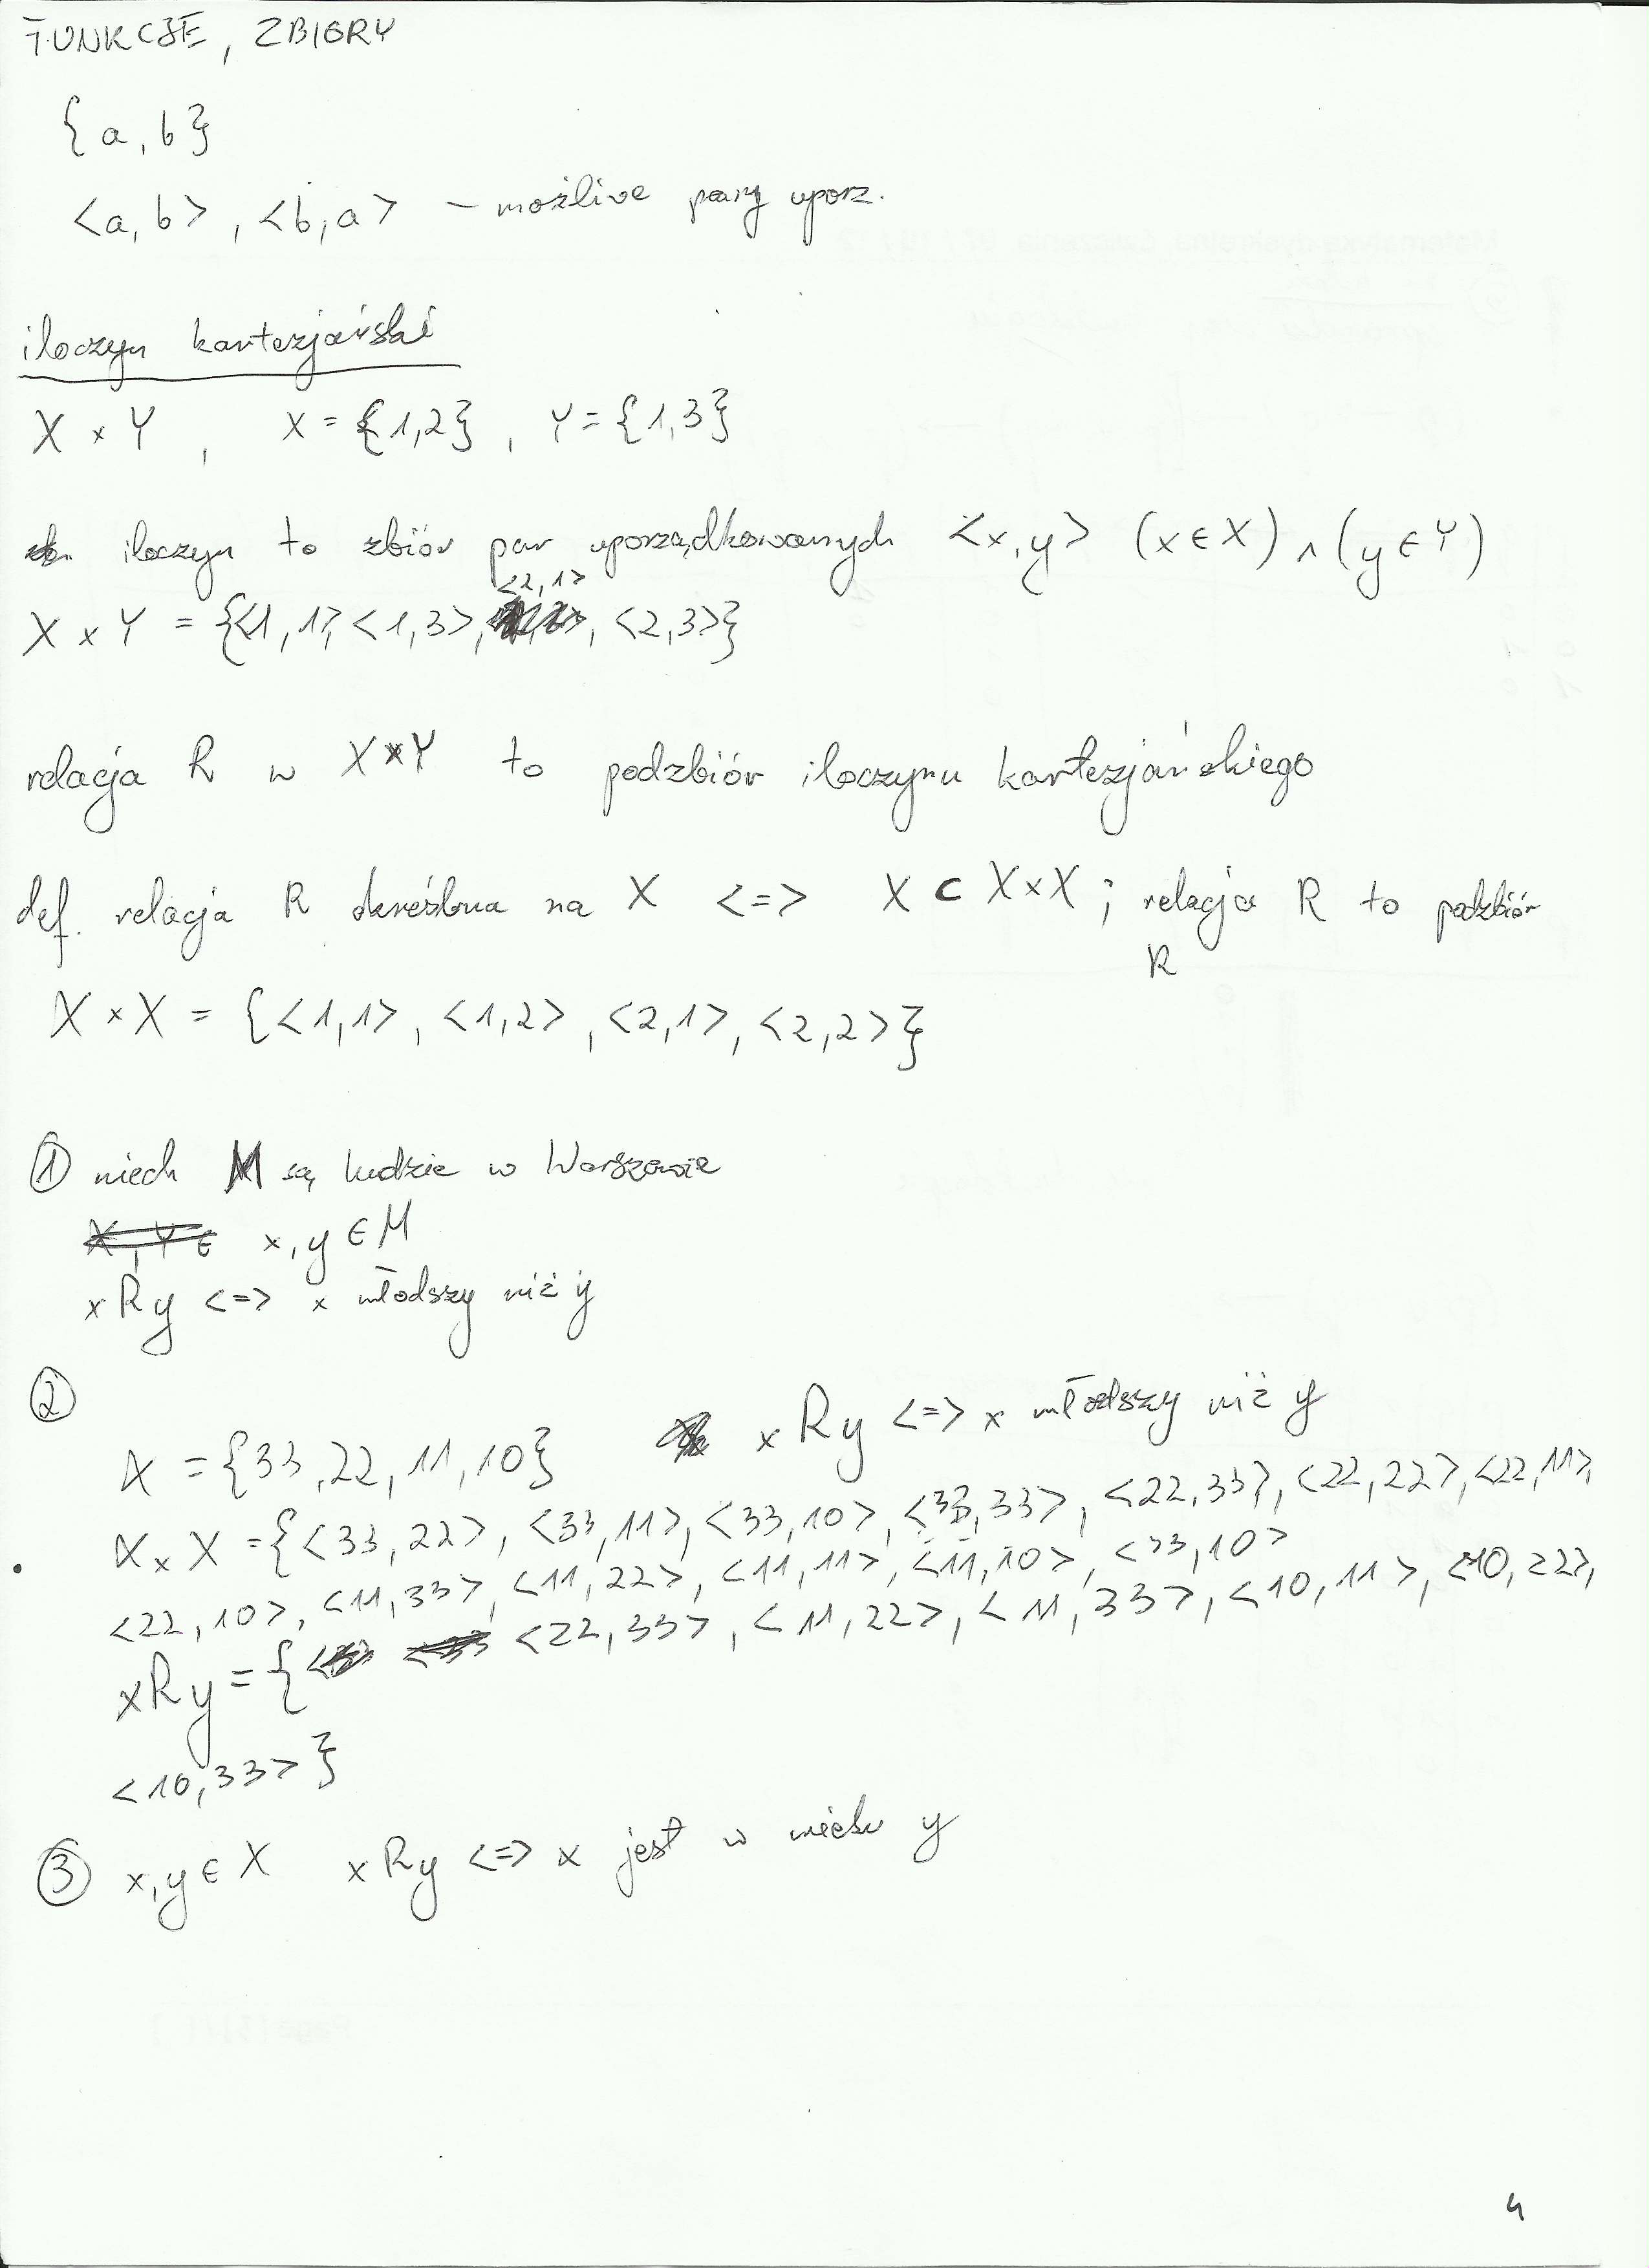 FUNKCJE, ZBIORY
{a, b}
<a, b>, <b, a> – możliwe pary uporz.
iloczyn kartezjański
X × Y, X = {1,2}, Y = {1,3}
iloczyn to zbiór par uporządkowanych <x,y> (x ∈ X) ∧ (y ∈ Y)
<2,1>
X × Y = {<1,1>, <1,3>, , <2,3>}
relacja R w X×Y to podzbiór iloczynu kartezjańskiego
def. relacja R określona na X <=> X ⊂ X×X ; relacja R to podzbiór
R
X × X = {<1,1>, <1,2>, <2,1>, <2,2>}
① niech M są ludzie w Warszawie
X, Y ∈ x, y ∈ M
xRy <=> x młodszy niż y
②
X = {33, 22, 11, 10} xRy <=> x młodszy niż y
X × X = {<33,22>, <33,11>, <33,10>, <33,33>, <22,33>, <22,22>, <22,11>,
<22,10>, <11,33>, <11,22>, <11,11>, <11,10>, <33,10>
xRy = { <22,33>, <11,22>, <11,33>, <10,11>, <10,22>,
<10,33>}
③ x,y ∈ X xRy <=> x jest w wieku y
4